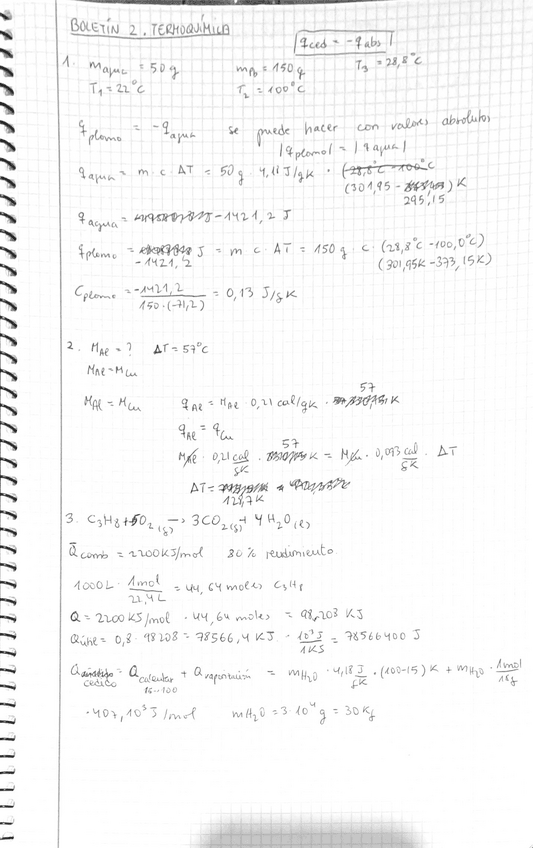 BOLETÍN 2. TERMOQUÍMICA
qced = -qabs
1. magua = 50 g mPb = 150 g T3 = 28,8°C
T1 = 22°C T2 = 100°C
qplomo = -qagua se puede hacer con valores absolutos
|qplomo| = |qagua|
qagua = m · c · ΔT = 50 g · 4,18 J/gK · (28,8°C - 100°C
(301,95 - K
295,15
qagua = -1421,2 J
qplomo = J = m c · ΔT = 150 g · c · (28,8°C - 100,0°C)
-1421,2 (301,95K - 373,15K)
Cplomo = -1421,2 / 150 · (-71,2) = 0,13 J/gK
2. MAl = ? ΔT = 57°C
MAl = MCu
57
MAl = MCu qAl = MAl · 0,21 cal/gK · K
qAl = qCu
57
MAl · 0,21 cal/gK · K = MCu · 0,093 cal/gK · ΔT
ΔT =
128,7 K
3. C3H8 + 5O2 (g) → 3CO2 (g) + 4H2O (l)
Qcomb = 2200 KJ/mol 80% rendimiento.
1000 L · 1 mol / 22,4 L = 44,64 moles C3H8
Q = 2200 KJ/mol · 44,64 moles = 98.208 KJ
Qútil = 0,8 · 98208 = 78566,4 KJ · 10³ J / 1 KJ = 78566400 J
Q = Qcalentar + Qvaporización = mH2O · 4,18 J/gK · (100-15) K + mH2O · 1 mol / 18 g
15→100
· 407,10³ J/mol mH2O = 3·10⁴ g = 30 Kg